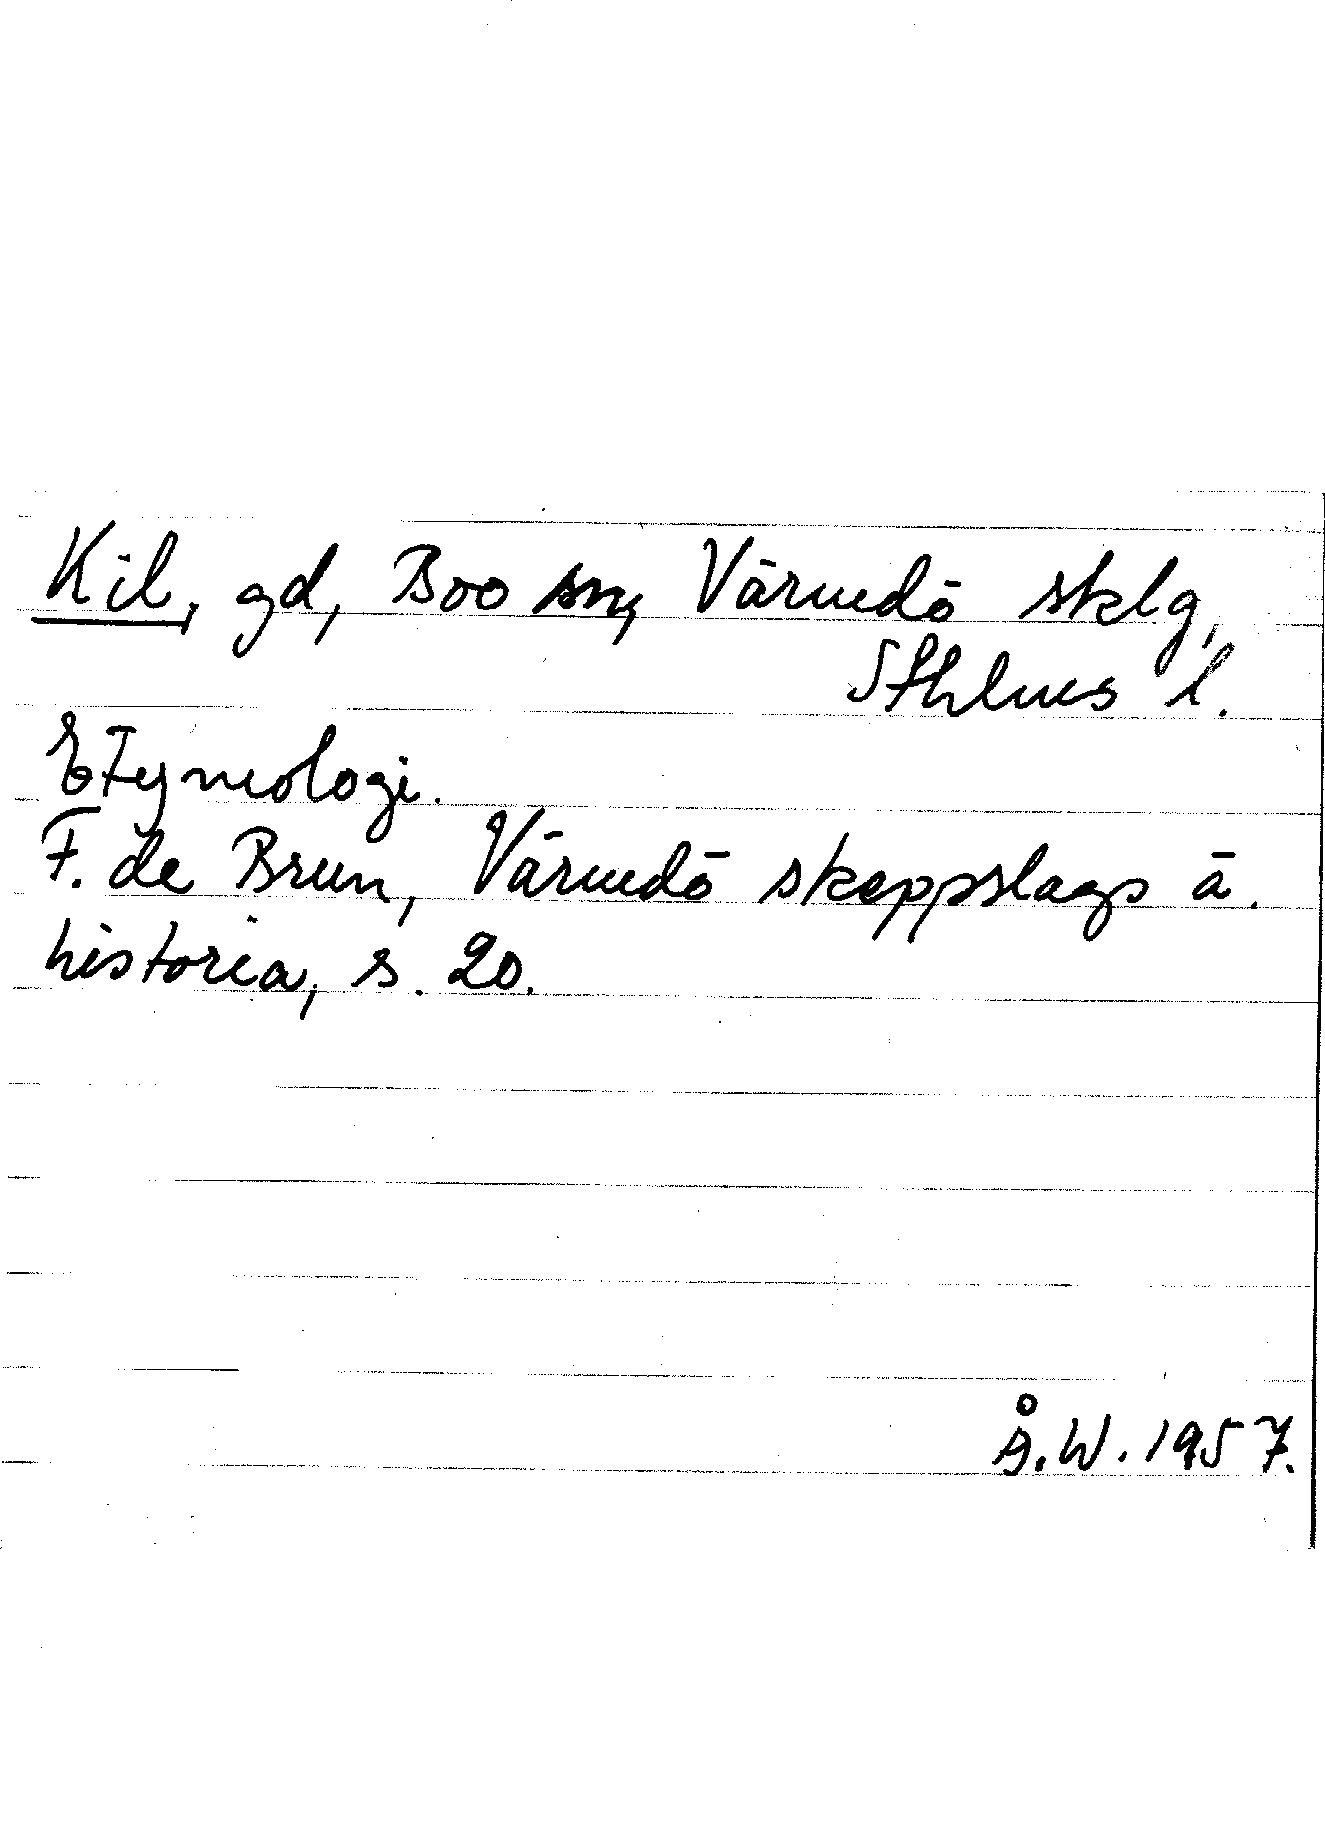 Kil, gd, Boo sn, Värmdö sklg,
Sthlms l.
Etymologi.
F. de Brun, Värmdö skeppslags ä.
historia, s. 20.
Å.W. 1957.